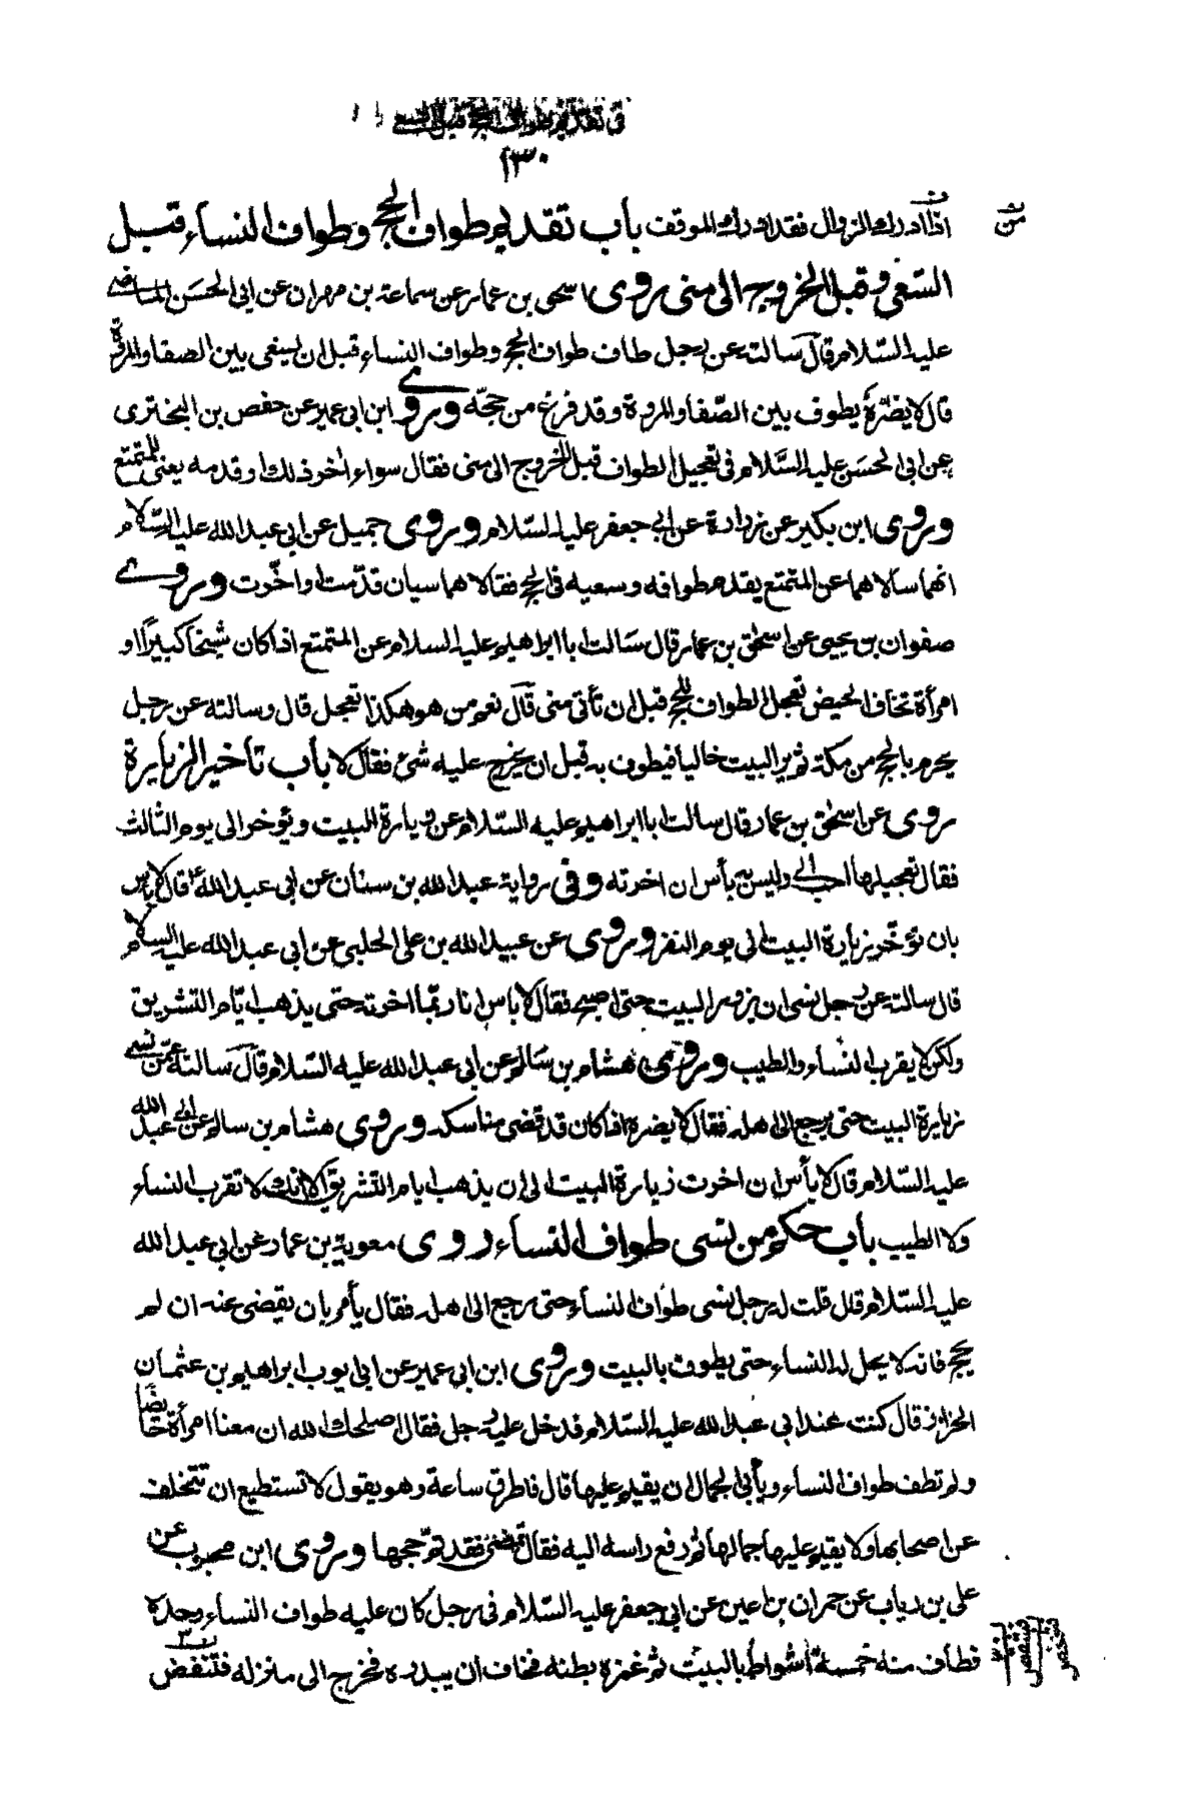 في تقديم طواف الحج قبل السعى
١٣٠
اذا ادرك الزوال فقد ادرك الموقف باب تقديم طواف الحج وطواف النساء قبل
السّعى وقبل الخروج الى منى روى اسحق بن عمار عن سماعة بن مهران عن ابى الحسن الماضى
عليه السّلام قال سالته عن رجل طاف طواف الحج وطواف النساء قبل ان يسعى بين الصفا والمروة
قال لا يضرّه يطوف بين الصّفا والمروة وقد فرغ من حجّه وروى ابن ابى عمير عن حفص بن البخترى
عن ابى الحسن عليه السَّلام فى تعجيل الطواف قبل الخروج الى منى فقال سواء اخر ذلك او قدمه يعنى للمتمتع
وروى ابن بكير عن زرارة عن ابى جعفر عليه السّلام وروى جميل عن ابى عبد الله عليه السّلام
انهما سالاهما عن المتمتع يقدم طوافه وسعيه فى الحج فقالا هما سيان قدّمت او اخّرت وروى
صفوان بن يحيى عن اسحق بن عمار قال سَالت ابا ابراهيم عليه السلام عن المتمتع اذا كان شيخًا كبيرًا او
امرأة تخاف الحيض تعجل الطواف للحج قبل ان تأتى منى قال نعم من هو هكذا تعجل قال وسالته عن رجل
يحرم بالحج من مكة ثم يرى البيت خاليا فيطوف به قبل ان يخرج عليه شئ فقال لا باب تأخير الزيارة
روى عن اسحق بن عمار قال سالت ابا ابراهيم عليه السّلام عن زيارة البيت يؤخر الى يوم الثالث
فقال تعجيلها احب الى وليس به بأس ان اخرته وفى رواية عبد الله بن سنان عن ابى عبد الله ع قال لا باس
بان تؤخّر زيارة البيت الى يوم النفر وروى عن عبيد الله بن على الحلبى عن ابى عبد الله عليه السلام
قال سالته عن رجل نسى ان يزور البيت حتى اصبح فقال لا باس انا ربّما اخرته حتى يذهب ايّام التشريق
ولكن لا يقرب النساء والطيب وروى هشام بن سَالم عن ابى عبد الله عليه السّلام قال سالته عمّن نسى
زيارة البيت حتى يرجع الى اهله فقال لا يضره اذا كان قد قضى مناسكه وروى هشام بن سالم عن ابى عبد الله
عليه السّلام قال لا بأس ان اخرت زيارة البيت الى ان يذهب ايام التشريق الا انك لا تقرب النساء
ولا الطيب باب حكم من نسى طواف النساء روى معوية بن عمار عن ابى عبد الله
عليه السّلام قال قلت له رجل نسى طواف النساء حتى يرجع الى اهله فقال يأمر بان يقضى عنه ان لم
يحج فانه لا يحل له النساء حتى يطوف بالبيت وروى ابن ابى عمير عن ابى ايوب ابراهيم بن عثمان
الخزاز قال كنت عند ابى عبد الله عليه السّلام فدخل عليه رجل فقال اصلحك الله ان معنا امرأة حائضًا
ولم تطف طواف النساء ويأبى الجمال ان يقيم عليها قال فاطرق ساعة وهو يقول لا تستطيع ان تتخلف
عن اصحابها ولا يقيم عليها جمالها ثم رفع راسه اليه فقال تمضى فقد تمّ حجها وروى ابن محبوب عن
على بن رياب عن حمران بن اعين عن ابى جعفر عليه السّلام فى رجل كان عليه طواف النساء وحده
فطاف منه خمسة اشواط بالبيت ثم غمزه بطنه فخاف ان يبدره فخرج الى منزله فتنفض